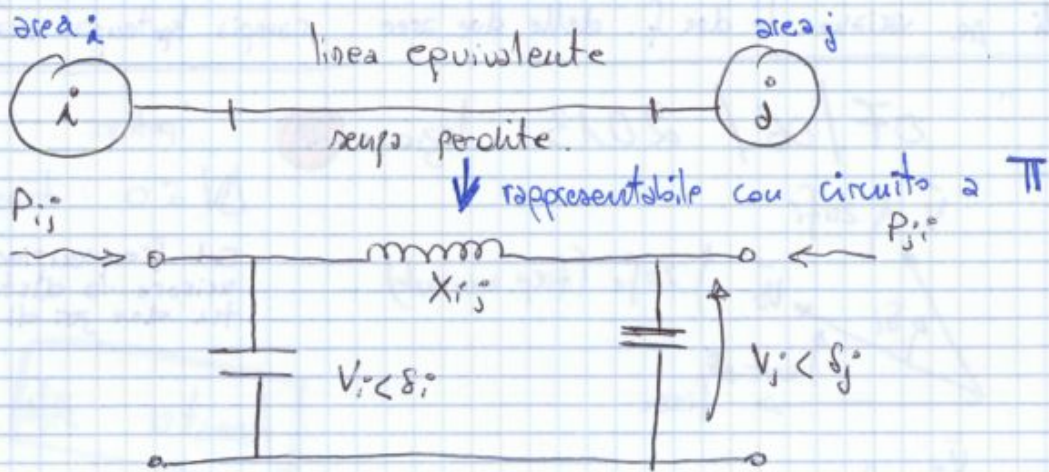 area i
area j
linea equivalente
i
j
senza perdite.
rappresentabile con circuito a π
Pij
Pji
Xij
Vi < δi
Vj < δj